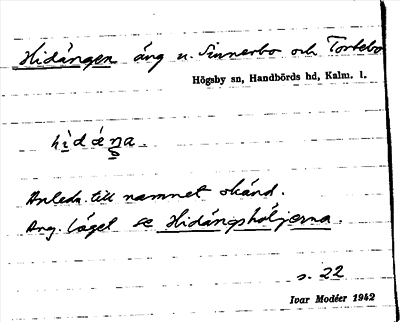 Hidängen äng u. Sinnerbo och Tortebo
Högsby sn, Handbörds hd, Kalm. l.
hìdáŋa.
Anledn. till namnet okänd.
Ang. läget se Hidängshöljerna.
s. 22
Ivar Modéer 1942